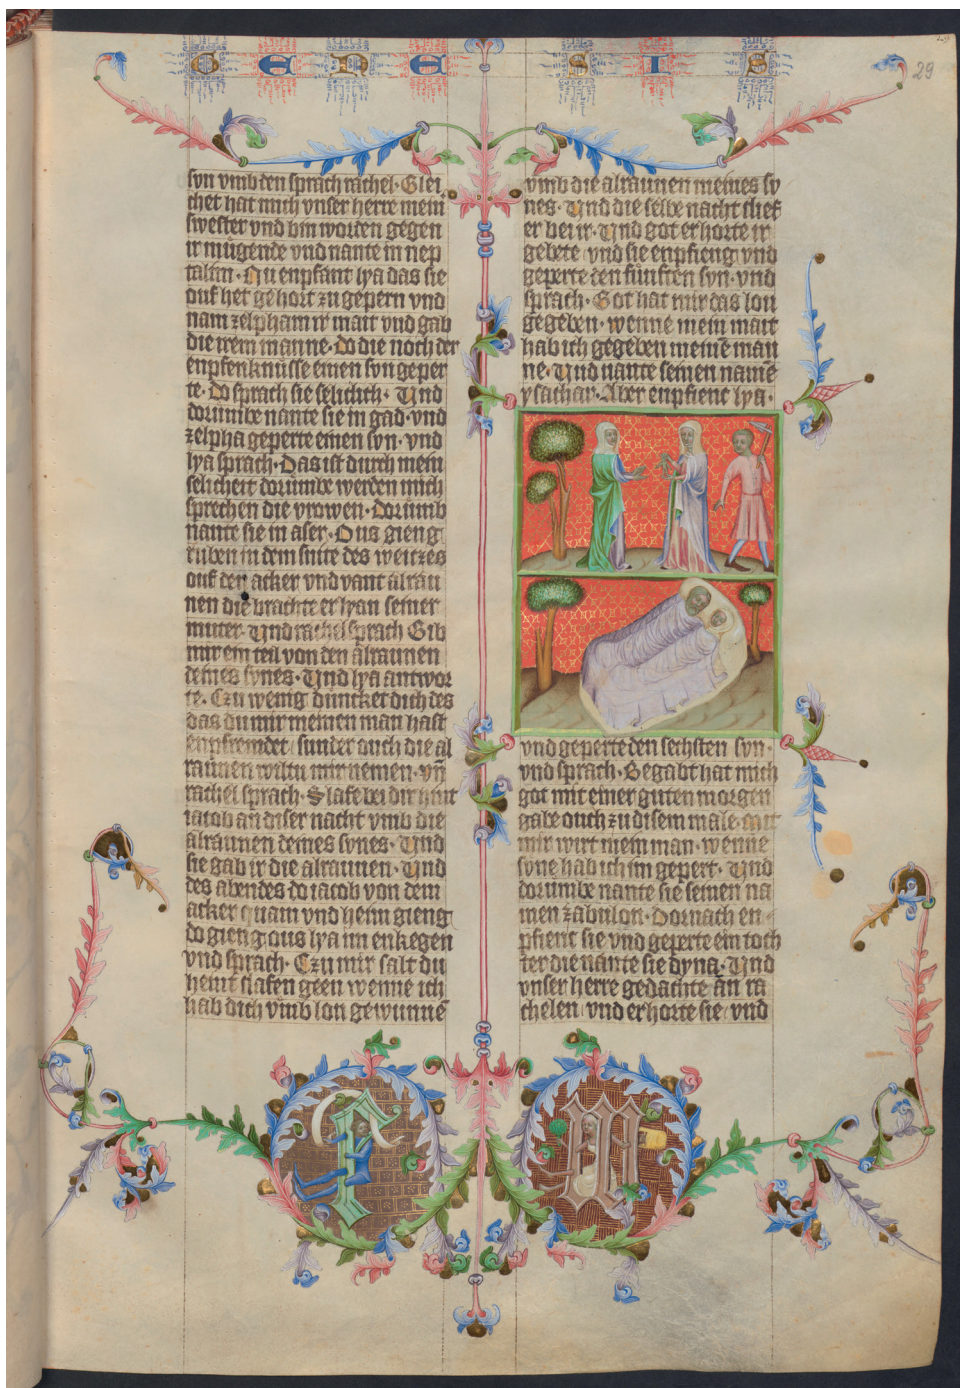 G E N E S I S
29
syn vmb den sprach rachel· Glei
chet hat mich vnser herre mein
swester vnd bin worden gegen
ir mugende vnd nante in nep
talim· Nu enpfant lya das sie
ouf het gehort zu gepern vnd
nam zelpham ir mait vnd gab
die irem manne· do die noch der
enpfenknusse einen syn geper
te· Do sprach sie selichlich· Vnd
dorumbe nante sie in gad· vnd
zelpha geperte einen syn· vnd
lya sprach· Das ist durch mein
selicheit dorumbe werden mich
sprechen die vrowen· Dorumb
nante sie in aser· Ous gieng
ruben in dem snite des weitzes
ouf den acker vnd vant alrau
nen die brachte er lyan seiner
muter· Vnd rachel sprach Gib
mir ein teil von den alraunen
deines synes· Vnd lya antwor
te· Czu wenig duncket dich des
das du mir meinen man hast
enpfremdet/ sunder ouch die al
raunen wiltu mir nemen· vn̄
rachel sprach· Slafe bei dir hint
iacob an diser nacht vmb die
alraunen deines synes· Vnd
sie gab ir die alraunen· Vnd
des abendes do iacob von dem
acker quam vnd heim gieng
do gieng ous lya im enkegen
vnd sprach· Czu mir salt du
heint slafen geen wenne ich
hab dich vmb lon gewunnē
vmb die alraunen meines sy
nes· Vnd die selbe nacht slief
er bei ir· Vnd got erhorte ir
gebete/ vnd sie enpfieng vnd
geperte den funften syn· vnd
sprach· Got hat mir das lon
gegeben· wenne mein mait
hab ich gegeben meinē man
ne· Vnd nante seinen namē
ysachar· Aber enpfient lya·
vnd geperte den sechsten syn·
vnd sprach· Begabt hat mich
got mit einer guten morgen
gabe ouch zu disem male· mit
mir wirt mein man· wenne
syne hab ich im gepert· Vnd
dorumbe nante sie seinen na
men zabulon· Dornach en
pfient sie vnd geperte ein toch
ter die nante sie dyna· Vnd
vnser herre gedachte an ra
chelen/ vnd erhorte sie/ vnd